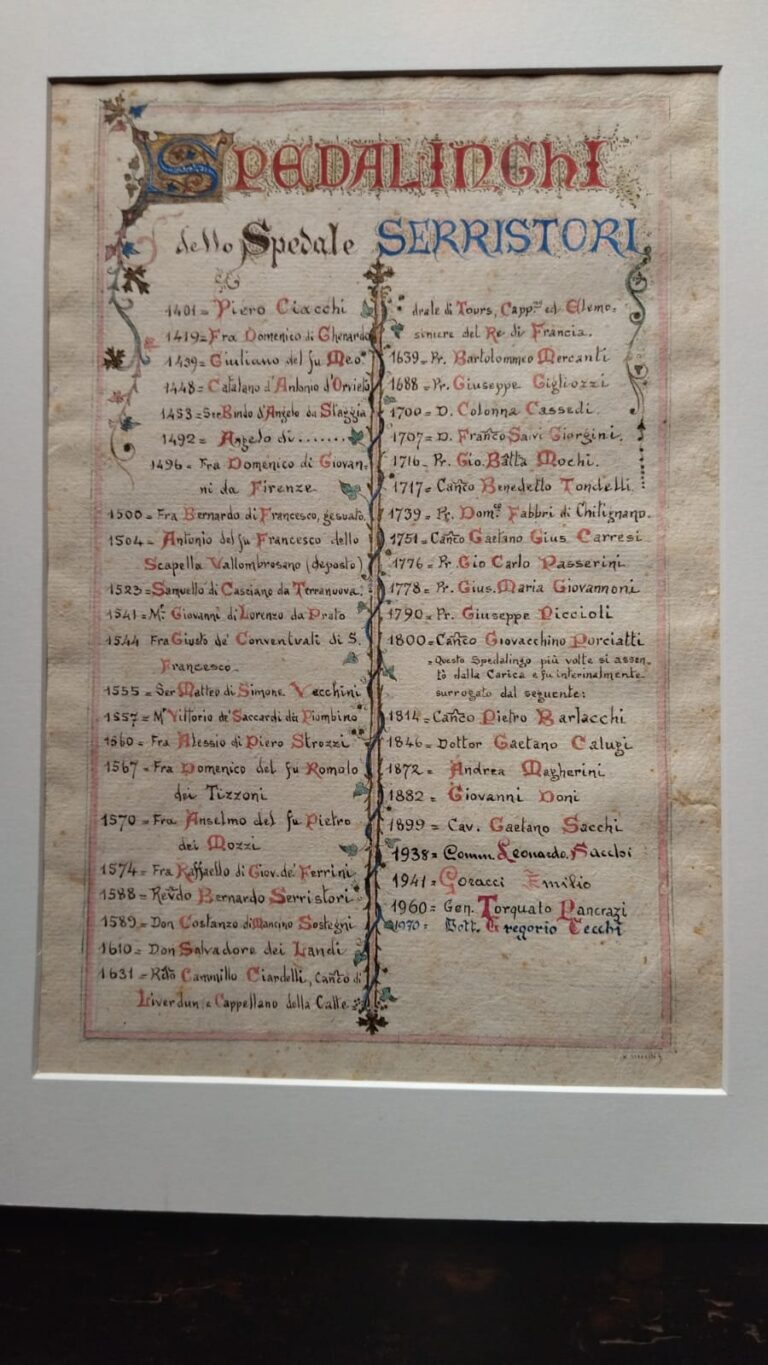 SPEDALINGHI
dello Spedale SERRISTORI
1401= Piero Ciacchi
1419= Fra Domenico di Gherardo
1439= Giuliano del fu Meo.
1448= Catalano d'Antonio d'Orvieto
1453= Ser Bindo d'Angelo da Staggia
1492= Angelo di.......
1496- Fra Domenico di Giovan-
ni da Firenze
1500= Fra Bernardo di Francesco, gesuato.
1504= Antonio del fu Francesco dello
Scapella Vallombrosano (deposto)
1523= Samuello di Casciano da Terranuova.
1541= Mº Giovanni di Lorenzo da Prato
1544 Fra Giusto de' Conventuali di S.
Francesco-
1555= Ser Matteo di Simone Vecchini
1557= Mº Vittorio de' Saccardi da Piombino
1560= Fra Alessio di Piero Strozzi
1567= Fra Domenico del fu Romolo
dei Tizzoni
1570= Fra Anselmo del fu Pietro
dei Mozzi
1574= Fra Raffaello di Giov. de' Ferrini
1588= Revdo Bernardo Serristori
1589= Don Costanzo di Mancino Sostegni
1610= Don Salvadore dei Landi
1631= Rdo Cammillo Ciardelli, Canco di
Liverdun e Cappellano della Catte-
drale di Tours, Cappno ed Elemo-
siniere del Re di Francia.
1639= Pr. Bartolommeo Mercanti
1688= Pr. Giuseppe Gigliozzi
1700= D. Colonna Cassedi.
1707= D. Franco Salvi Giorgini.
1716- Pr. Gio. Batta Mochi.
1717= Canco Benedetto Tondelli.
1739= Pr. Domco Fabbri di Chitignano.
1751= Canco Gaetano Gius. Carresi
1776= Pr. Gio Carlo Passerini
1778= Pr. Gius. Maria Giovannoni
1790= Pr. Giuseppe Piccioli
1800= Canco Giovacchino Porciatti
= Questo Spedalingo più volte si assen-
tò dalla Carica e fu interinalmente
surrogato dal seguente:
1814= Canco Pietro Barlacchi
1846= Dottor Gaetano Calugi
1872= Andrea Magherini
1882= Giovanni Doni
1899= Cav. Gaetano Sacchi
1938= Comm. Leonardo Sacchi
1941= Goracci Emilio
1960= Gen. Torquato Pancrazi
1970= Dott. Gregorio Cecchi